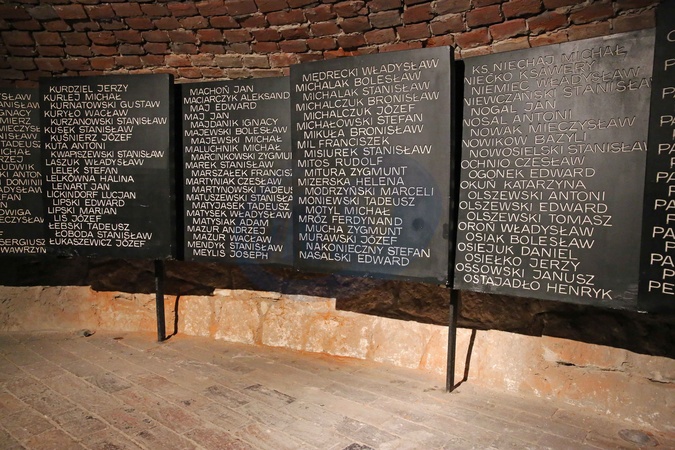 KURDZIEL JERZY
KURLEJ MICHAŁ
KURNATOWSKI GUSTAW
KURYŁO WACŁAW
KURZANOWSKI STANISŁAW
KUSEK STANISŁAW
KUŚNIERZ JÓZEF
KUTA ANTONI
KWAPISZEWSKI STANISŁAW
LASZUK WŁADYSŁAW
LELEK STEFAN
LELKÓWNA HALINA
LENART JAN
LICKINDORF LUCJAN
LIPSKI EDWARD
LIPSKI MARIAN
LIS JÓZEF
ŁEBSKI TADEUSZ
ŁOBODA STANISŁAW
ŁUKASZEWICZ JÓZEF
MACHOŃ JAN
MACIARCZYK ALEKSAND
MAJ EDWARD
MAJ JAN
MAJDANIK IGNACY
MAJEWSKI BOLESŁAW
MAJEWSKI MICHAŁ
MALUCHNIK MICHAŁ
MARCINKOWSKI ZYGMU
MAREK STANISŁAW
MARSZAŁEK FRANCISZ
MARTYNIAK CZESŁAW
MARTYNOWSKI TADEUSZ
MATUSZEWSKI STANIS
MATYJASEK TADEUSZ
MATYSEK WŁADYSŁAW
MATYSIAK ADAM
MAZUR ANDRZEJ
MAZUR WACŁAW
MENDYK STANISŁAW
MEYLIS JOSEPH
MĘDRECKI WŁADYSŁAW
MICHALAK BOLESŁAW
MICHALAK STANISŁAW
MICHALCZUK BRONISŁAW
MICHALCZUK JÓZEF
MICHAŁOWSKI STEFAN
MIKUŁA BRONISŁAW
MIL FRANCISZEK
MISIUREK STANISŁAW
MITOS RUDOLF
MITURA ZYGMUNT
MIZERSKA HELENA
MODRZYŃSKI MARCELI
MONIEWSKI TADEUSZ
MOTYL MICHAŁ
MROZ FERDYNAND
MUCHA ZYGMUNT
MURAWSKI JÓZEF
NAKONIECZNY STEFAN
NASALSKI EDWARD
KS NIECHAJ MICHAŁ
NIEĆKO KSAWERY
NIEMIEC WŁADYSŁAW
NIEWCZAŃSKI STANISŁAW
NOGAL JAN
NOSAL ANTONI
NOWAK MIECZYSŁAW
NOWIKOW BAZYLI
NOWOSIELSKI STANISŁAW
OCHNIO CZESŁAW
OGONEK EDWARD
OKUN KATARZYNA
OLSZEWSKI ANTONI
OLSZEWSKI EDWARD
OLSZEWSKI TOMASZ
OROŃ WŁADYSŁAW
OSIAK BOLESŁAW
OSIEJUK DANIEL
OSIEŁKO JERZY
OSSOWSKI JANUSZ
OSTAJADŁO HENRYK